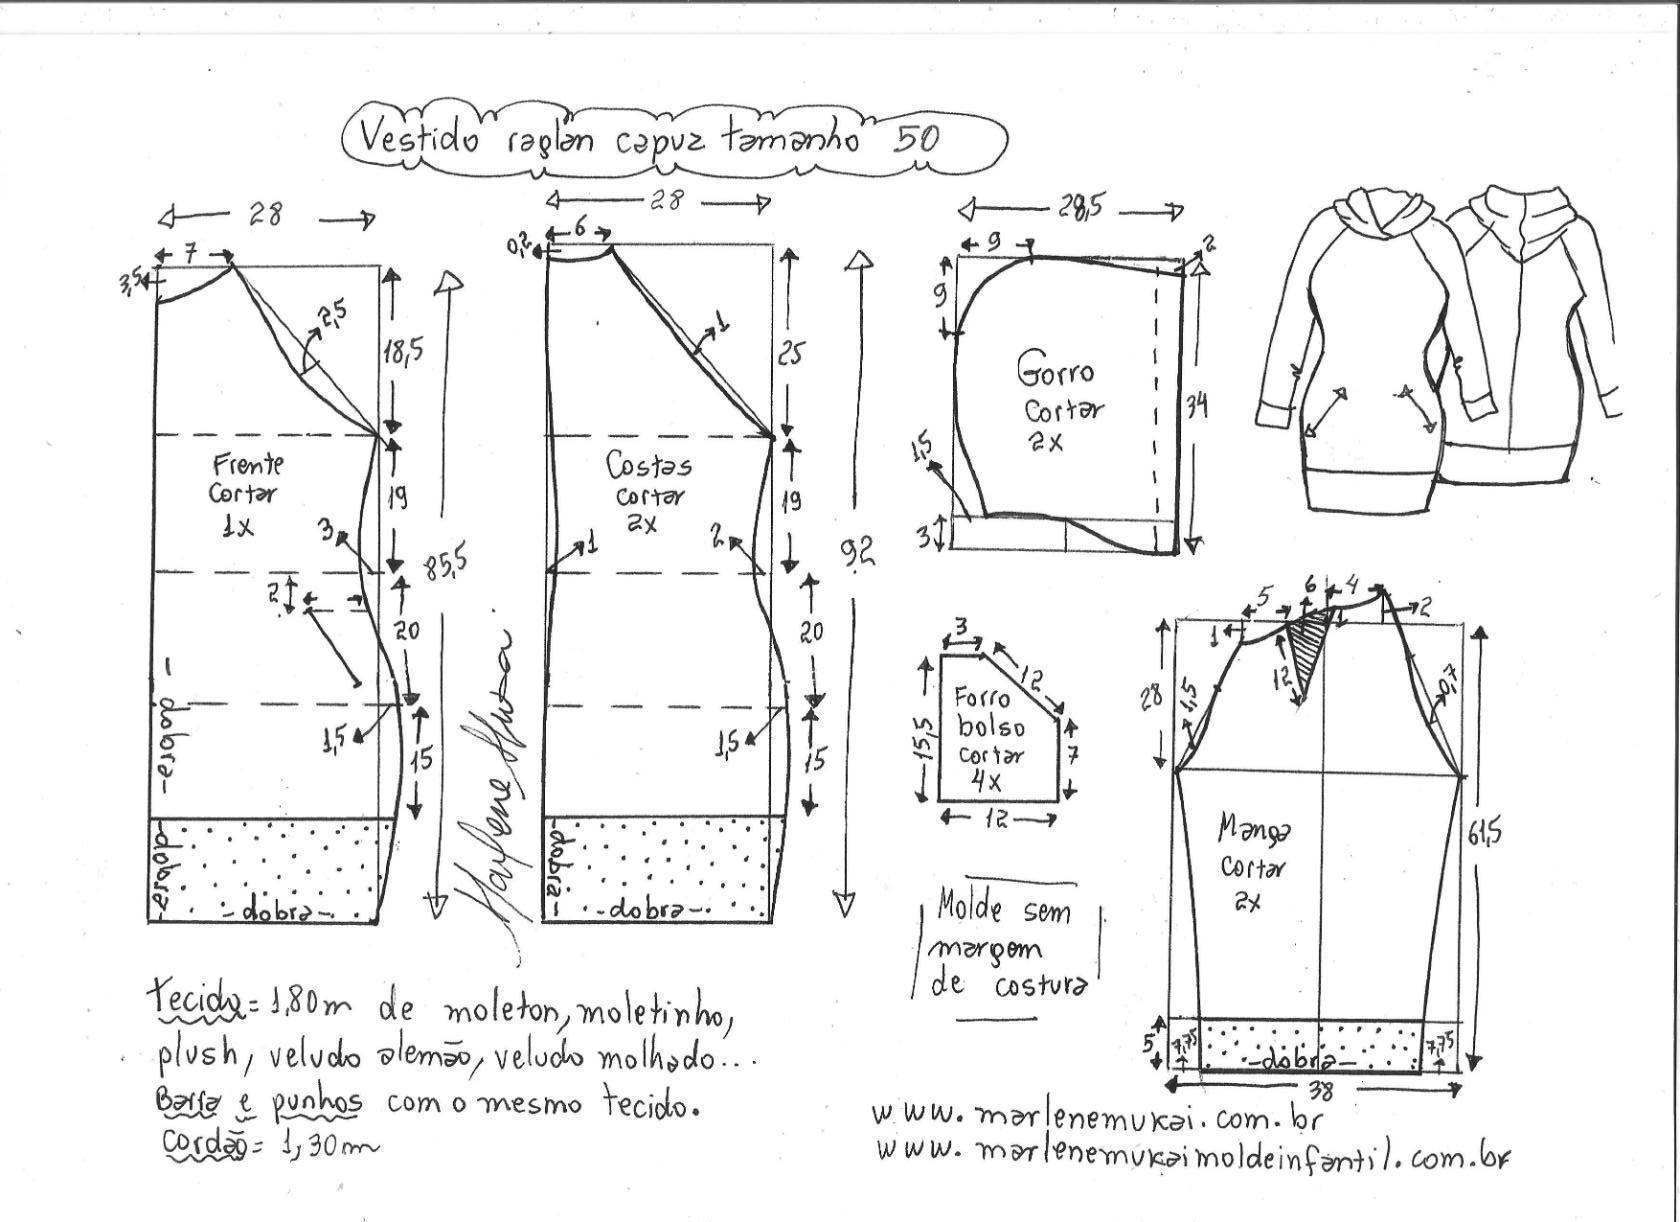 Vestido raglan capuz tamanho 50
28
7
3,5
2,5
18,5
Frente
cortar
1x
19
3
2
85,5
20
1,5
15
-dobra-
-dobra-
-dobra-
28
6
0,2
1
25
Costas
cortar
2x
19
1
2
92
20
1,5
15
-dobra-
-dobra-
28,5
9
2
9
Gorro
cortar
2x
34
1,5
3
3
12
Forro
bolso
cortar
4x
15,5
7
12
5
6
4
1
1
2
12
28
1,5
0,7
Manga
cortar
2x
61,5
5
7,75
-dobra-
7,75
38
Molde sem
margem
de costura
Tecido= 1,80m de moleton, moletinho,
plush, veludo alemão, veludo molhado...
Barra e punhos com o mesmo tecido.
cordão= 1,30m
www.marlenemukai.com.br
www.marlenemukaimoldeinfantil.com.br